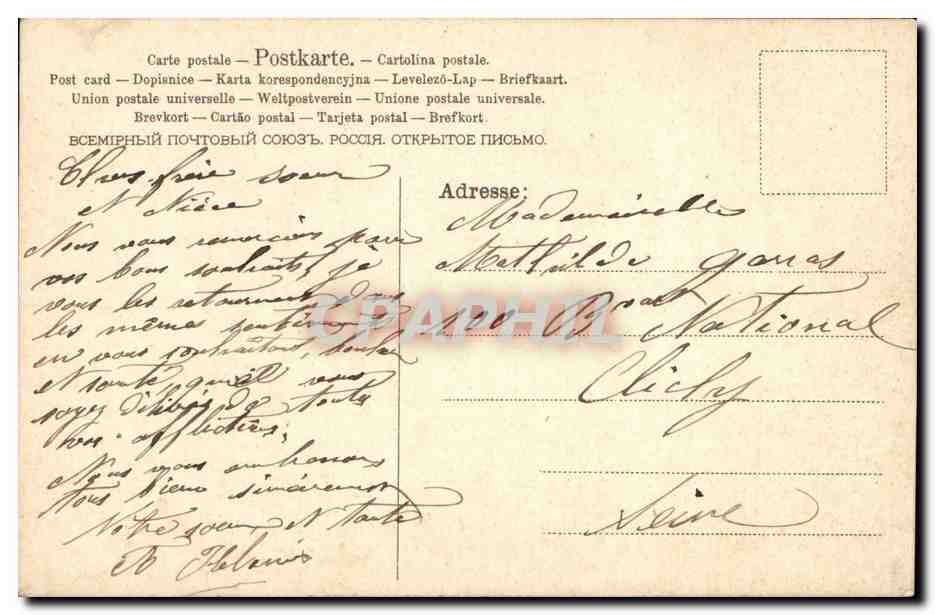 Carte postale — Postkarte. — Cartolina postale.
Post card — Dopisnice — Karta korespondencyjna — Levelező-Lap — Briefkaart.
Union postale universelle — Weltpostverein — Unione postale universale.
Brevkort — Cartão postal — Tarjeta postal — Brefkort
ВСЕМІРНЫЙ ПОЧТОВЫЙ СОЮЗЪ. РОССІЯ. ОТКРЫТОЕ ПИСЬМО.
Chers frère soeur
et Nièce
Nous vous remercions pour
vos bons souhaits, je
vous les retournent dans
les même
en vous souhaitant,
et santé qu'il vous
soyez de toute
vos afflictions,
Nous vous embrassons
tous bien sincèrement
Votre soeur et Tante
Adresse:
Mademoiselle
Mathilde Garras
100 B^ard National
Clichy
Seine
CPAPHIL